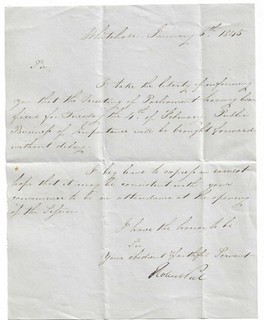 Whitehall January 6th 1845
Sir
I take the liberty of informing
you that the Meeting of Parliament having been
fixed for Tuesday the 4th of February Public
Business of importance will be brought forward
without delay.
I beg leave to express an earnest
hope that it may be consistent with your
convenience to be in attendance at the opening
of the Session.
I have the honor to be
Sir
Your obedient faithful Servant
Robert Peel